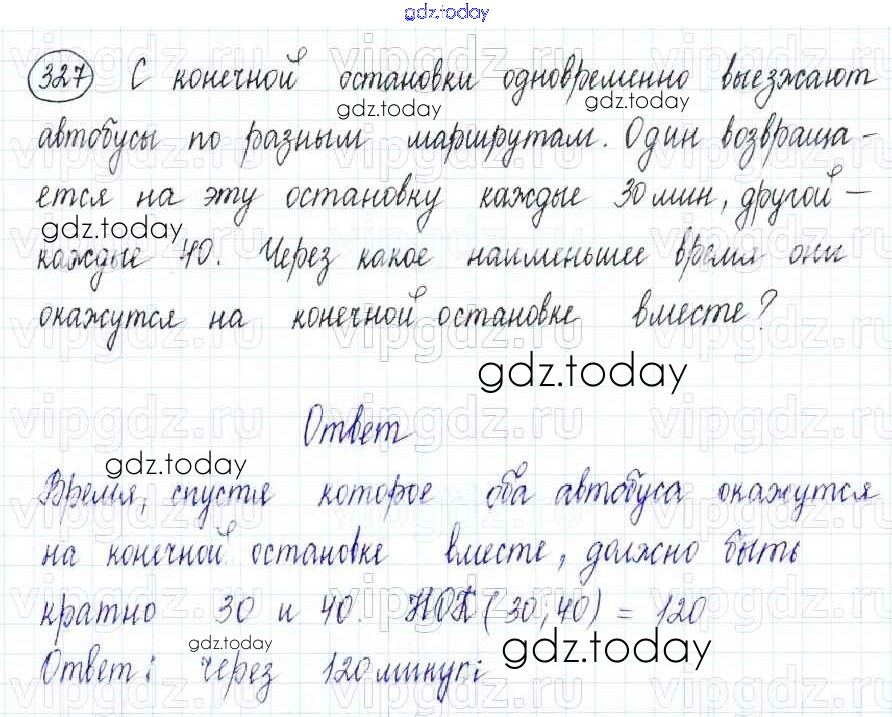 gdz.today
327 С конечной остановки одновременно выезжают
gdz.today gdz.today
автобусы по разным маршрутам. Один возвраща-
ется на эту остановку каждые 30 мин, другой —
gdz.today
каждые 40. Через какое наименьшее время они
окажутся на конечной остановке вместе?
gdz.today
Ответ
gdz.today
Время, спустя которое оба автобуса окажутся
на конечной остановке вместе, должно быть
кратно 30 и 40. НОК (30; 40) = 120
gdz.today gdz.today
Ответ: через 120 минут